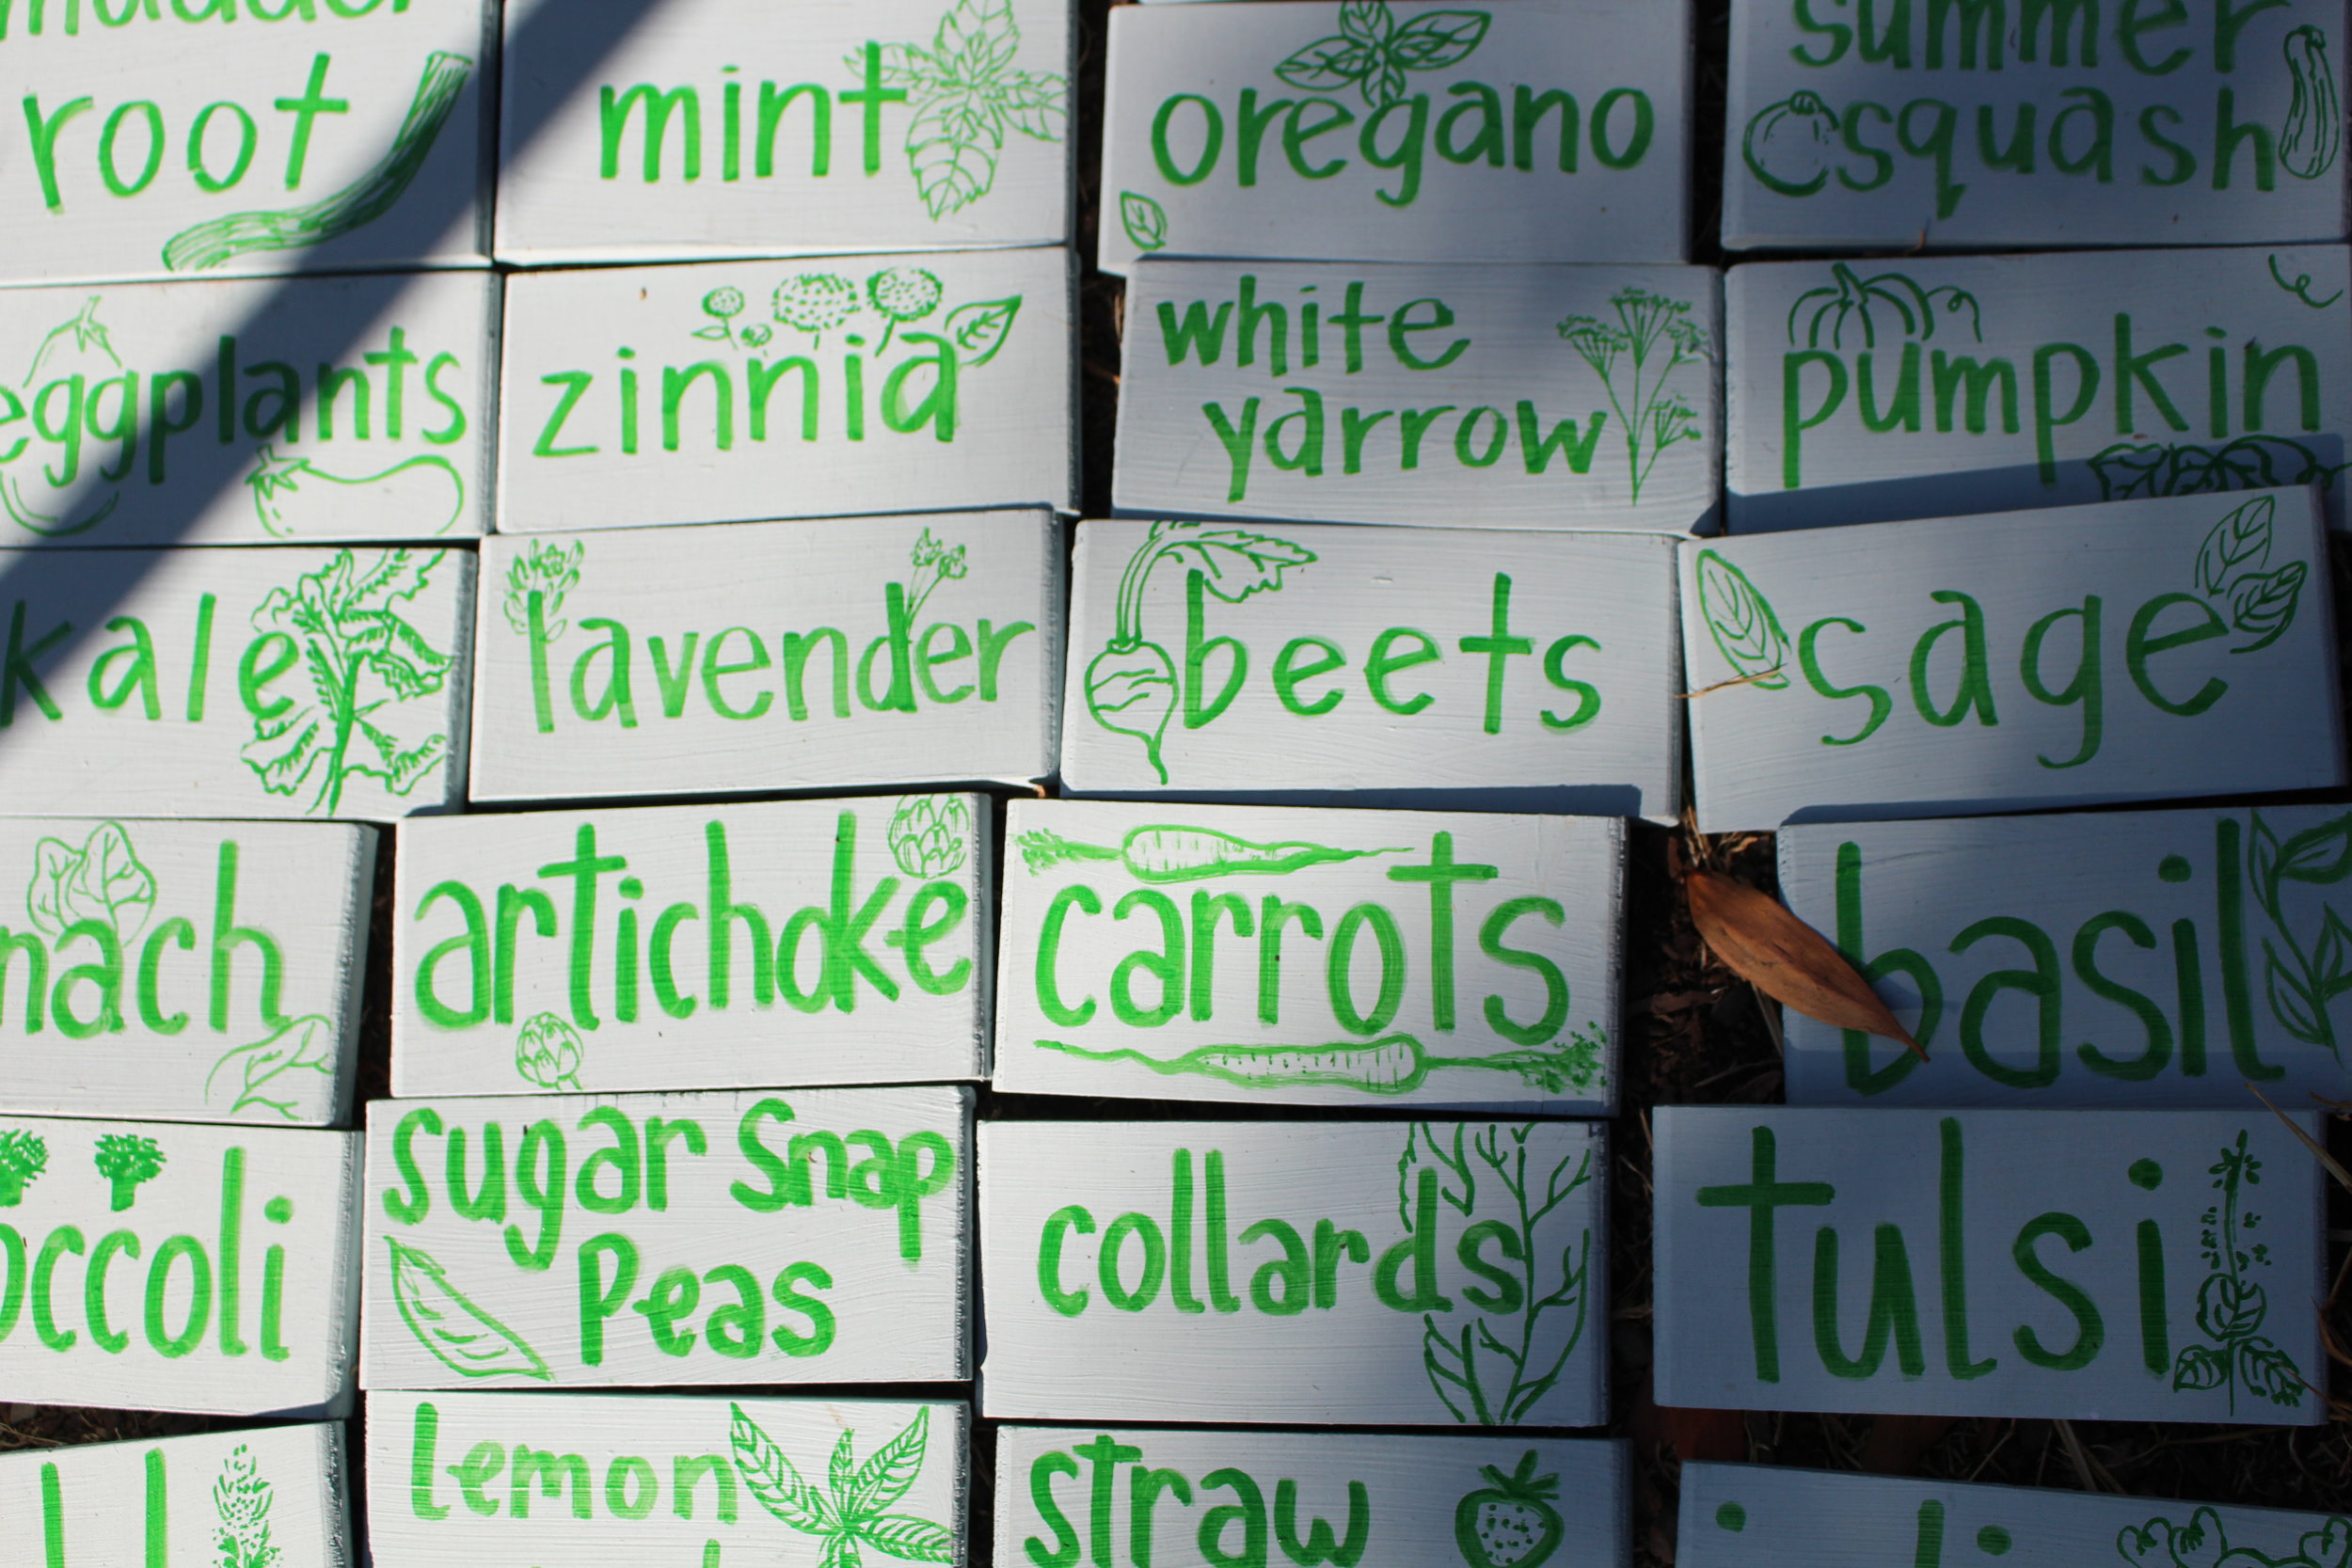 root
mint
oregano
summer
squash
eggplants
zinnia
white
yarrow
pumpkin
kale
lavender
beets
sage
nach
artichoke
carrots
basil
occoli
sugar Snap
Peas
collards
tulsi
Lemon
straw